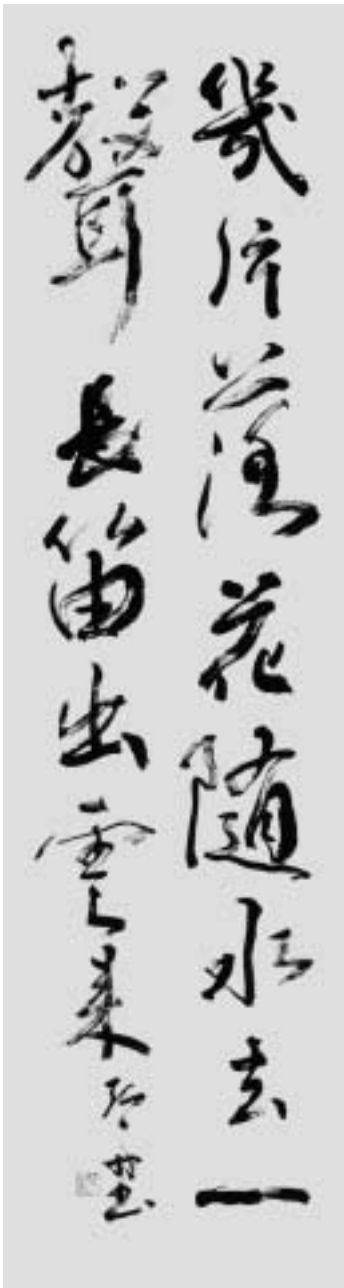 幾片落花隨水去一
聲長笛出雲來